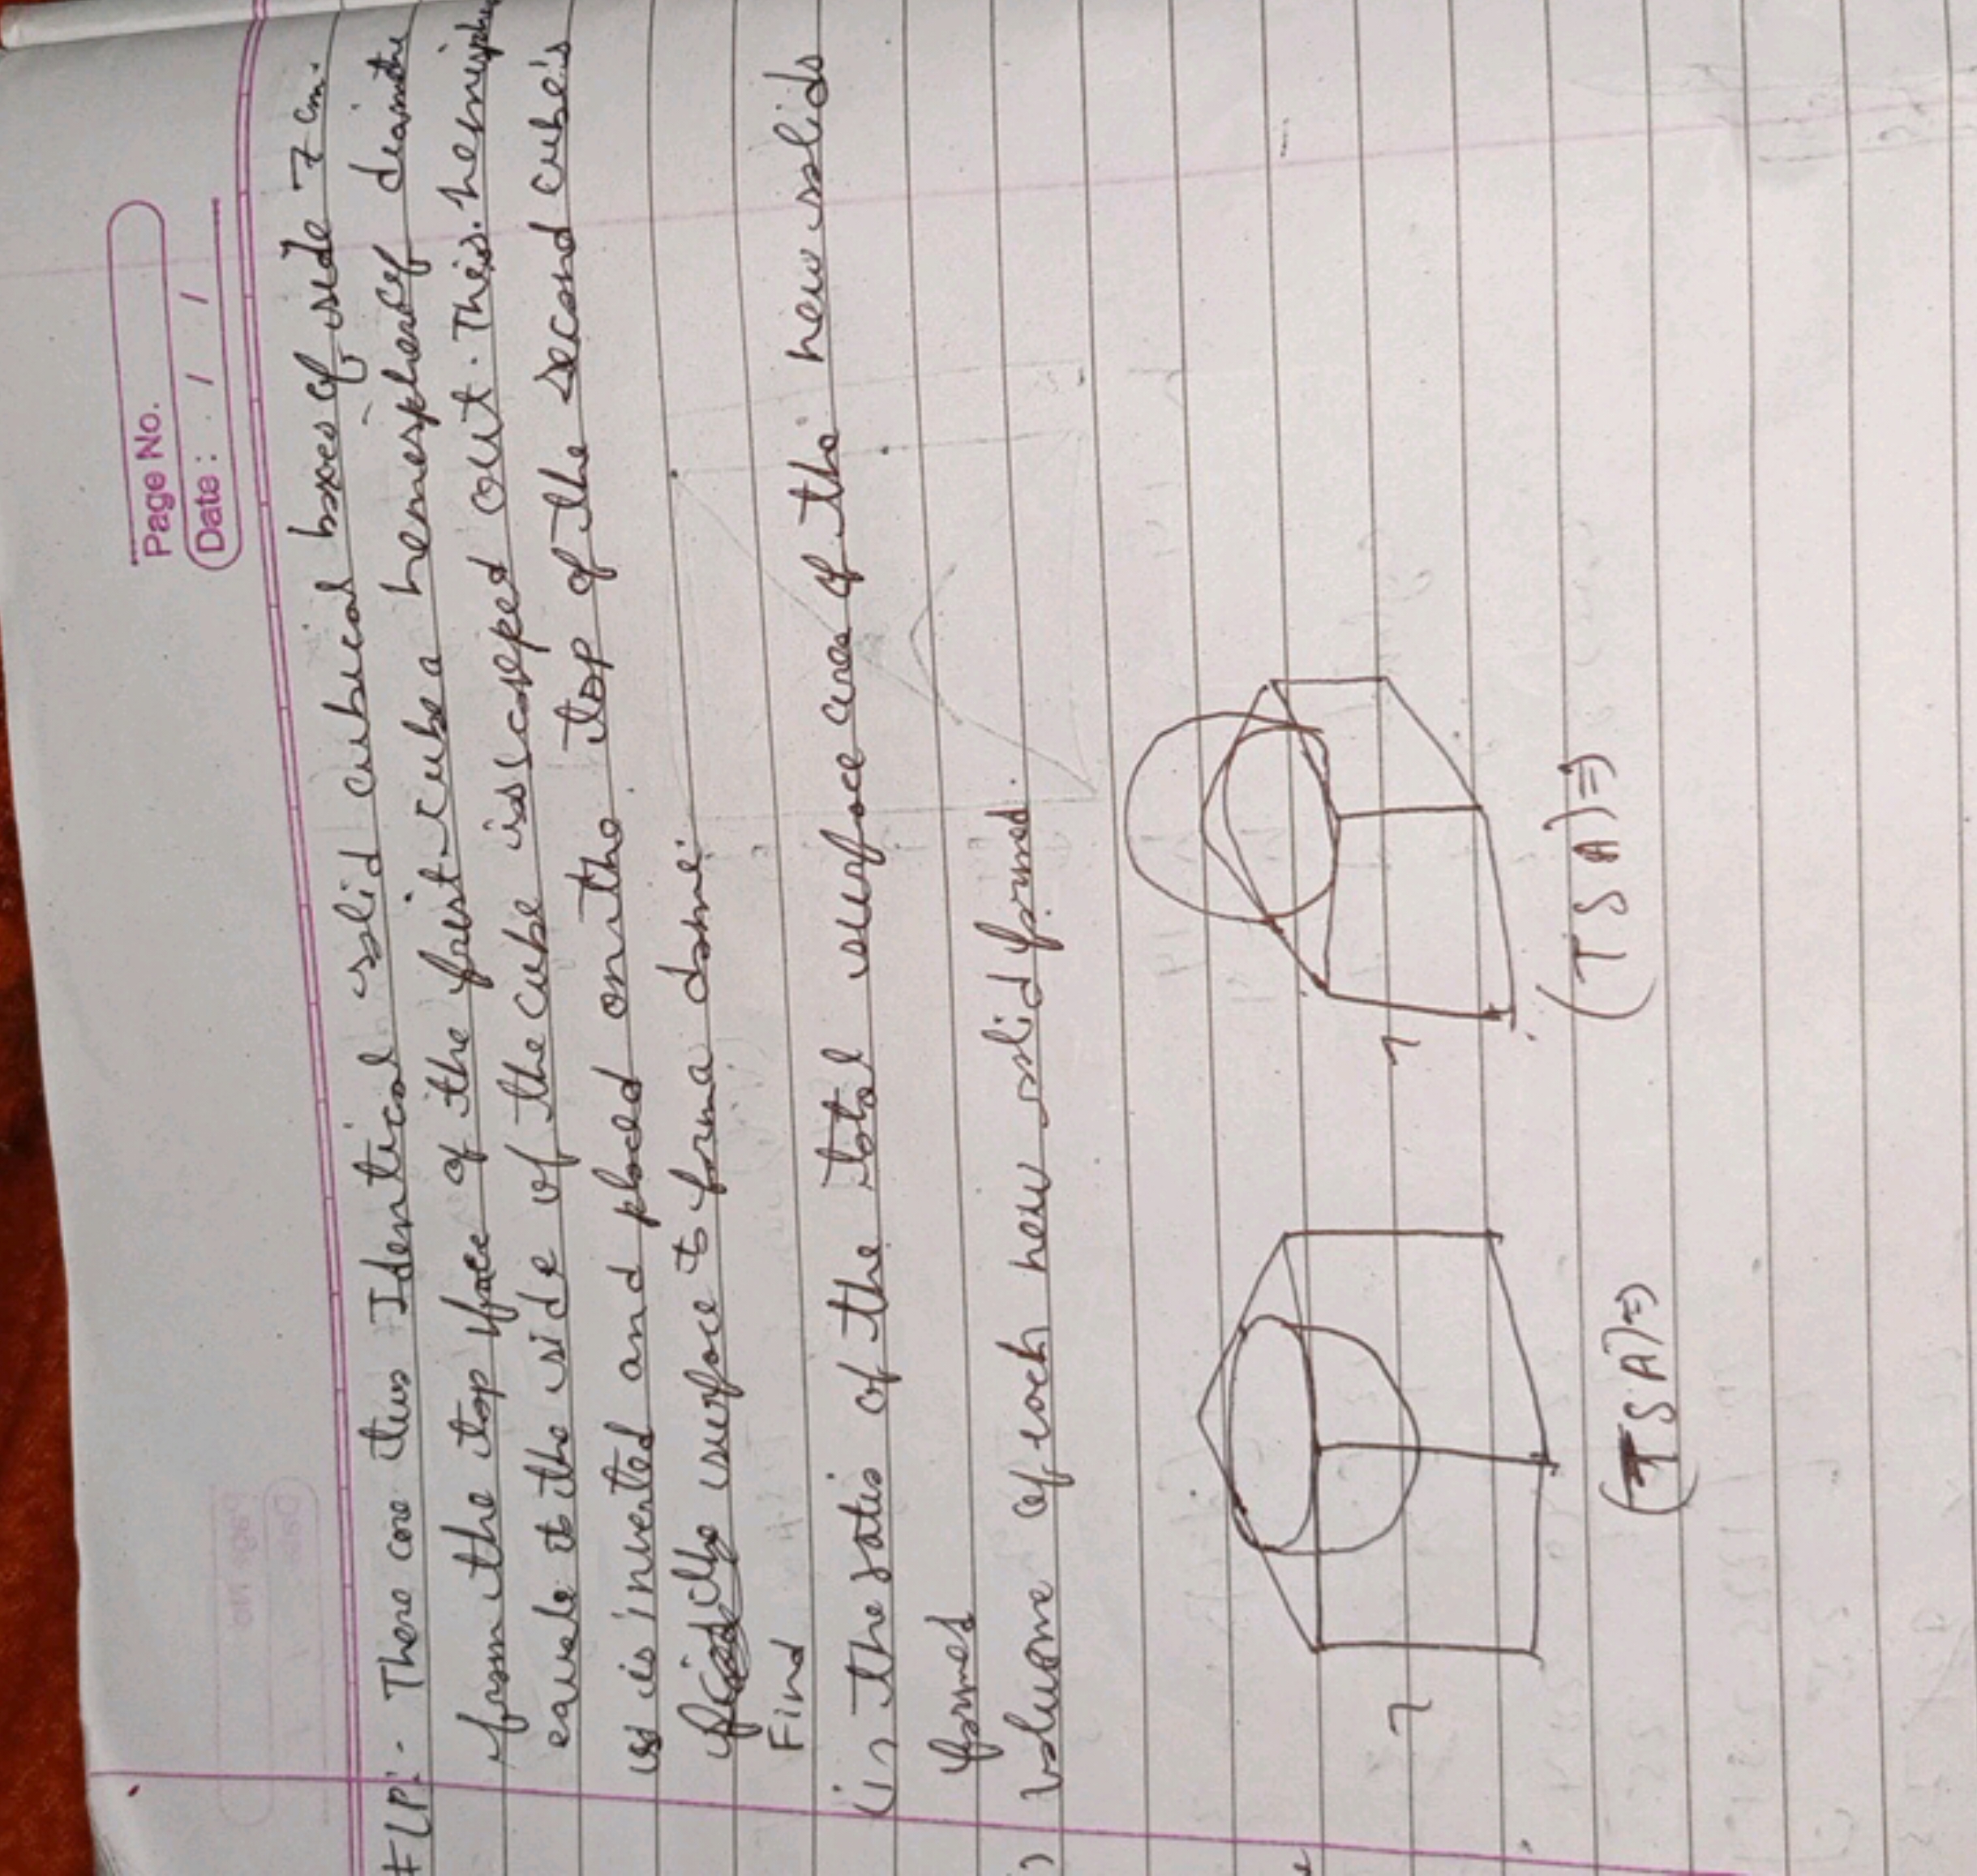 Page No.
Date : / /
FLP:- There are two Identical solid cubical boxes of side 7 cm.
from the top face of the first cube a hemisphere of diametre
equale to the side of the cube is scooped out. This hemisphe
is inverted and placed on the top of the second cube's
the surface to form a dome.
Find
(i) the ratio of the total surface area of the new solids
formed
) volume of each new solid formed.
7
7
(TSA)⇒
(TSA)⇒